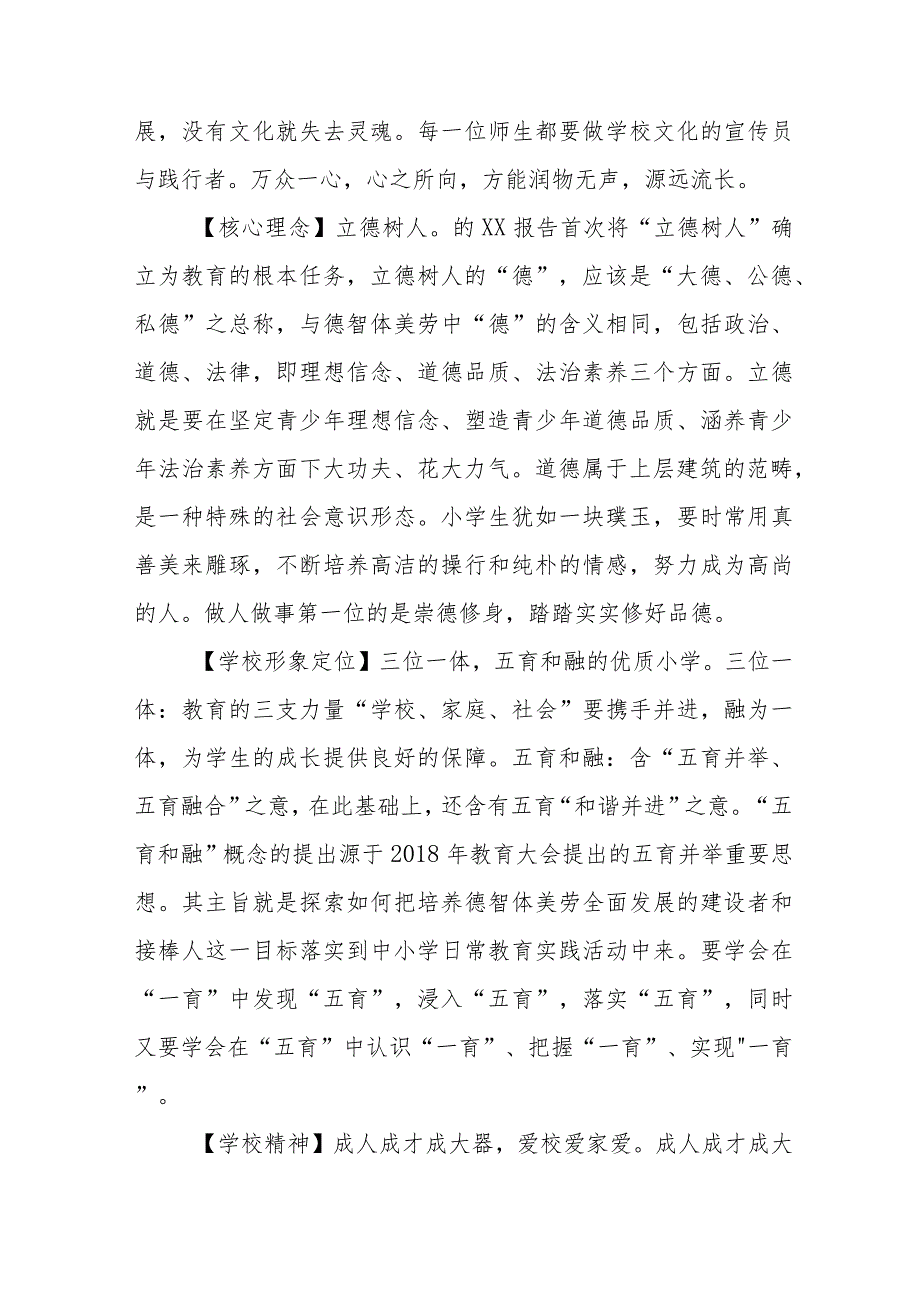 展，没有文化就失去灵魂。每一位师生都要做学校文化的宣传员
与践行者。万众一心，心之所向，方能润物无声，源远流长。
【核心理念】立德树人。的XX报告首次将“立德树人”确
立为教育的根本任务，立德树人的“德”，应该是“大德、公德、
私德”之总称，与德智体美劳中“德”的含义相同，包括政治、
道德、法律，即理想信念、道德品质、法治素养三个方面。立德
就是要在坚定青少年理想信念、塑造青少年道德品质、涵养青少
年法治素养方面下大功夫、花大力气。道德属于上层建筑的范畴，
是一种特殊的社会意识形态。小学生犹如一块璞玉，要时常用真
善美来雕琢，不断培养高洁的操行和纯朴的情感，努力成为高尚
的人。做人做事第一位的是崇德修身，踏踏实实修好品德。
【学校形象定位】三位一体，五育和融的优质小学。三位一
体：教育的三支力量“学校、家庭、社会”要携手并进，融为一
体，为学生的成长提供良好的保障。五育和融：含“五育并举、
五育融合”之意，在此基础上，还含有五育“和谐并进”之意。“五
育和融”概念的提出源于2018年教育大会提出的五育并举重要思
想。其主旨就是探索如何把培养德智体美劳全面发展的建设者和
接棒人这一目标落实到中小学日常教育实践活动中来。要学会在
“一育”中发现“五育”，浸入“五育”，落实“五育”，同时
又要学会在“五育”中认识“一育”、把握“一育”、实现"一育
”。
【学校精神】成人成才成大器，爱校爱家爱。成人成才成大